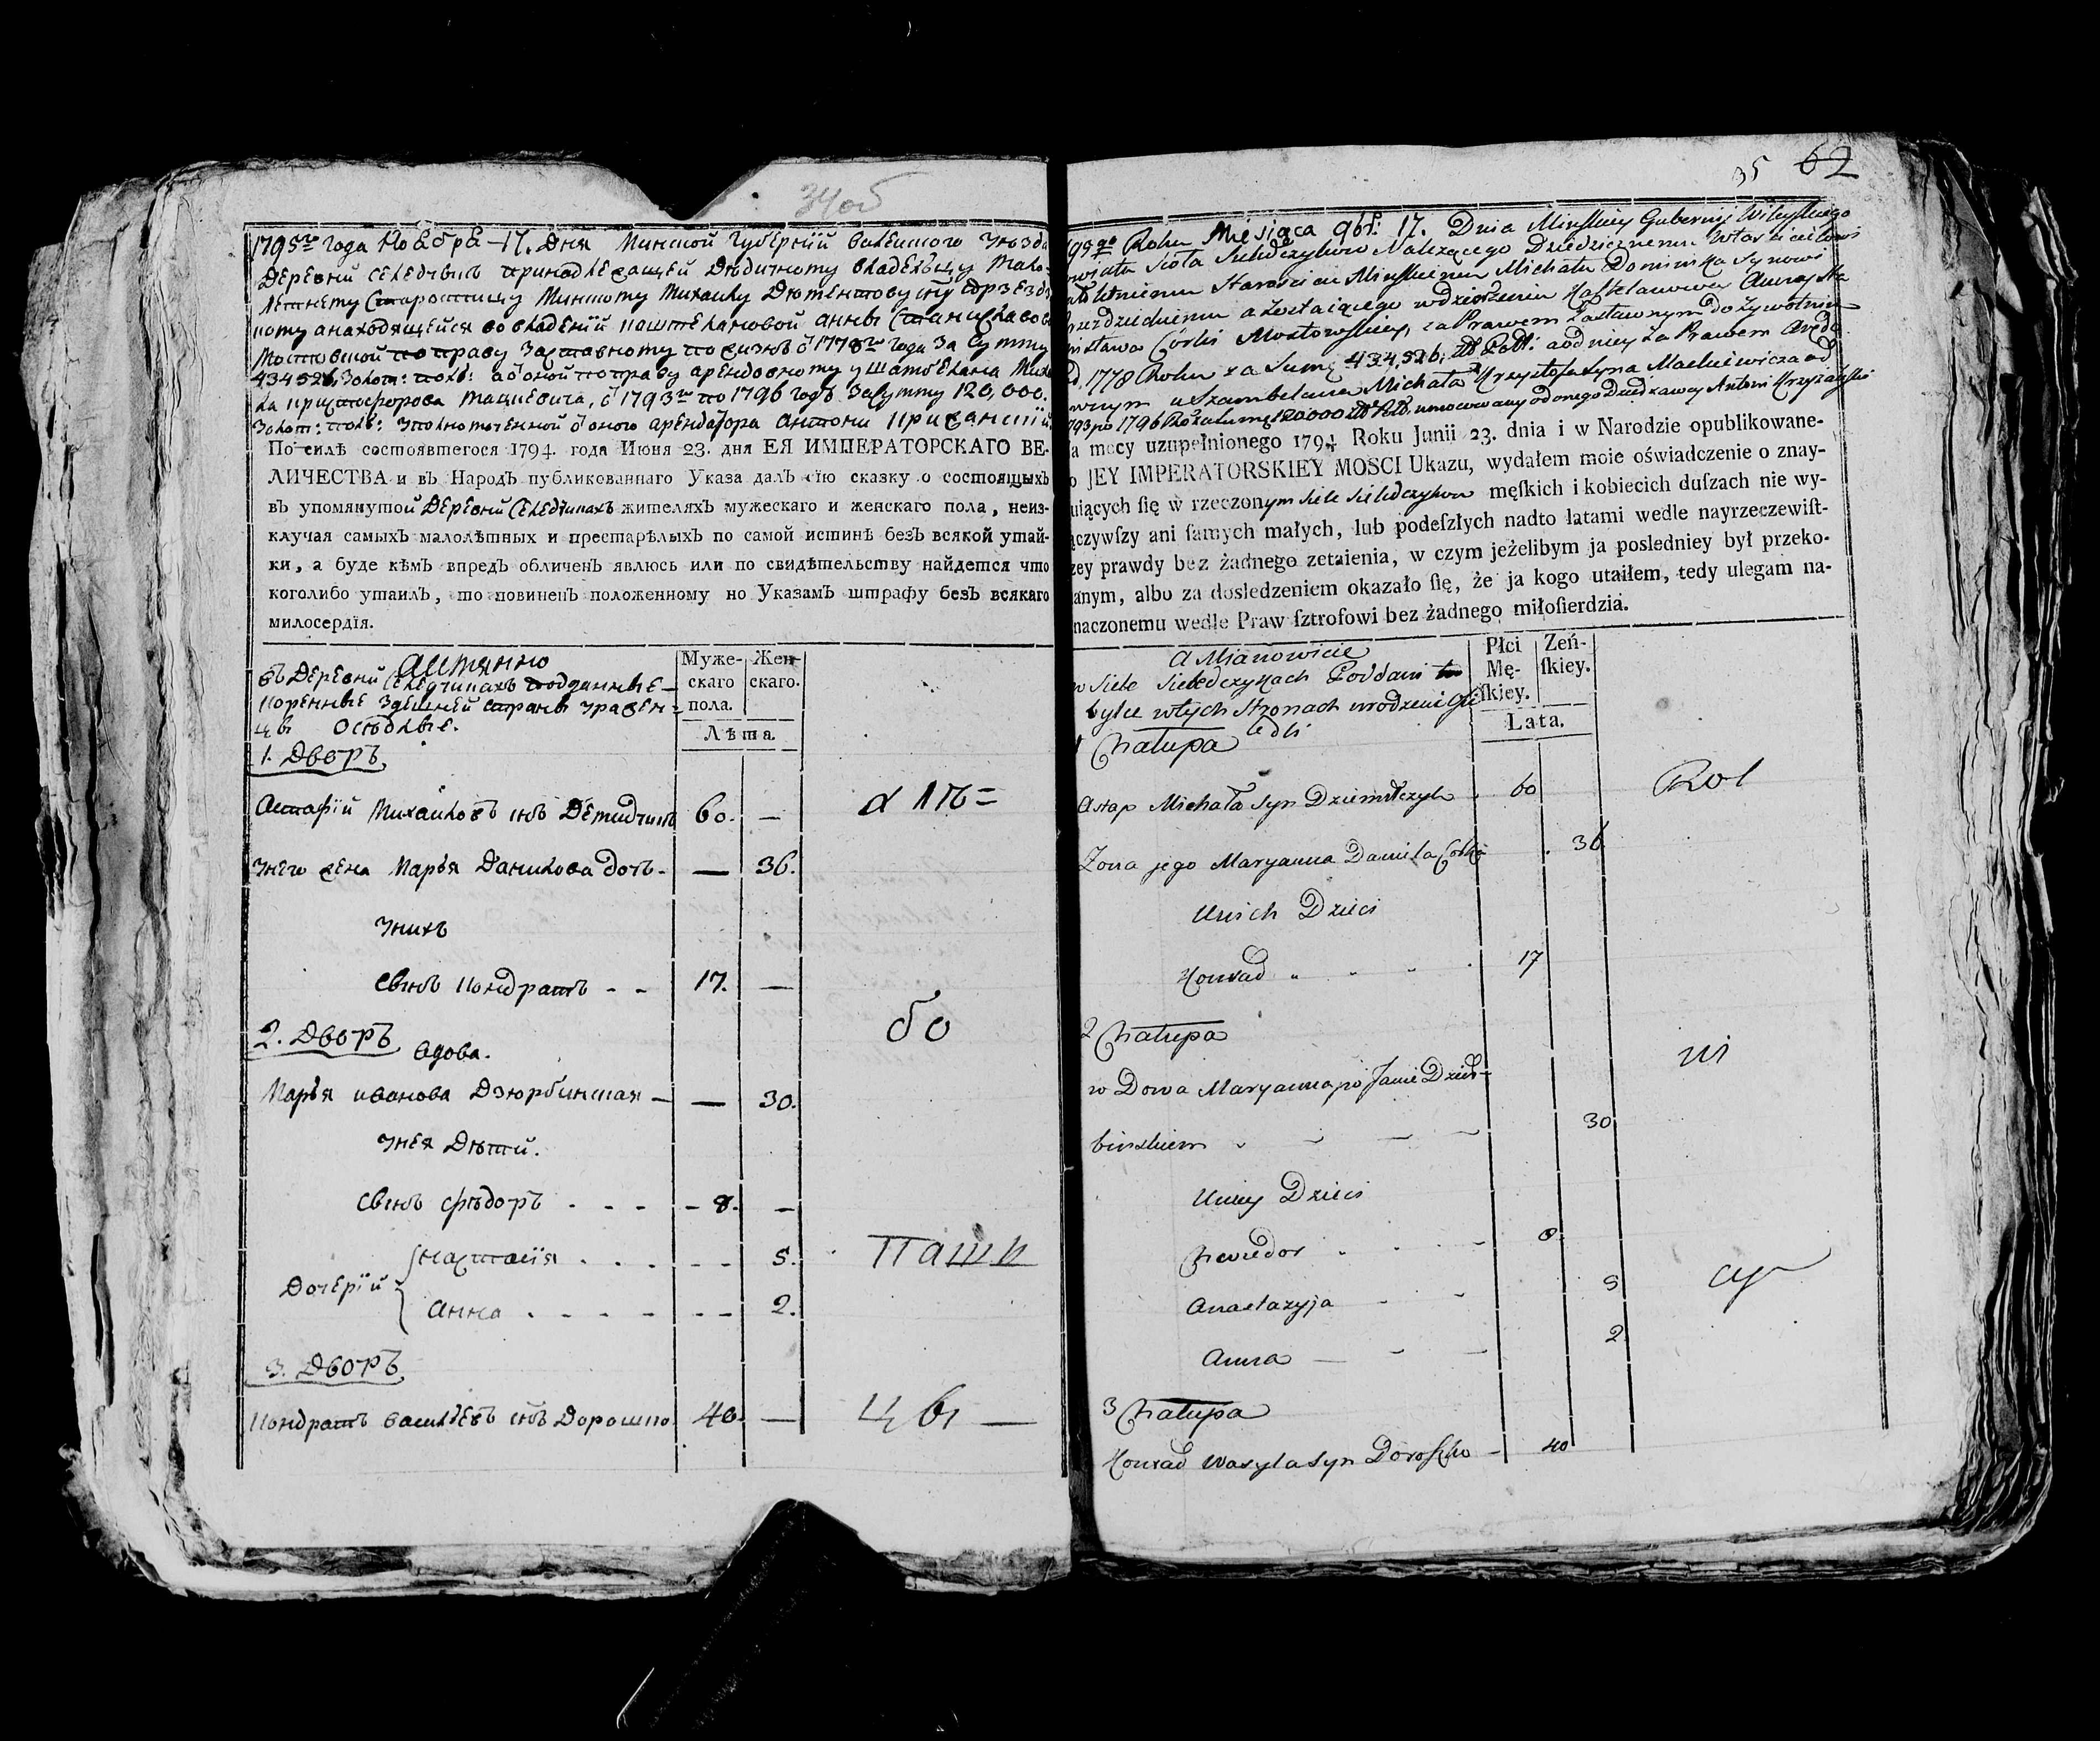 34об
1795го года Ноебре 17. дня Минской Губернїй Вилейского Уезда
Деревнй Селедчикъ принадлежащей Дедичному владельцу Мало-
летнему Старостицу Минскому Михайлу Доменикову сну
кому а находящейся во владенїй каштеляновой Анны Станиславовой
Мостовской по праву Заставному по жизнь о 1778го года За Сумму
434526 Золот: полс: а оной по праву арендовному у Шамбеляна Миха
ла Криштофорова Мацкевича, о 1793го по 1796 годъ За сумму 120,000.
Золот: полс: Уполномоченной о оного арендатора Антони Крижанский
По силѣ состоявшегося 1794. года Июня 23. дня ЕЯ ИМПЕРАТОРСКАГО ВЕ-
ЛИЧЕСТВА и въ Народъ публикованнаго Указа далъ сїю сказку о состоящыхъ
въ упомянутой Деревнй Селедчикахъ жителяхъ мужескаго и женскаго пола, неиз-
ключая самыхъ малолѣтных и престарѣлыхъ по самой истинѣ безъ всякой утай-
ки, а буде кѣмъ впредъ обличенъ явлюсь или по свидѣтельству найдется что
коголибо утаилъ, то повиненъ положенному по Указамъ штрафу безъ всякаго
милосердїя.
Аимянно
въ Деревнй Селедчикахъ подданные
коренные Здешней страны Урожен-
цы Оседлые.
Муже-
скаго
пола.
Жен-
скаго.
Лѣта.
1. Дворъ
Астафїй Михайловъ снъ Демидчикъ 60. —
У него жена Марья Данилова дочь — 36.
У нихъ
Сынъ Кондратъ - - 17. —
2. Дворъ
Вдова.
Марья Иванова Дзюрбинская — 30.
У нея Дети.
Сынъ Федоръ - - - 8. —
Дочерїй
Настасїя - - 5.
Анна - - 2.
3. Дворъ
Кондратъ Васильевъ снъ Дорошко 40. —
бо
Пашк
цы —
35 62
Roku Miesiąca 9br: 17. Dnia Mińskiey Gubernii Wileyskiego
wiata Sioła Sieledczykow Nalezącego Dziedzicznemu Włascicielowi
letniemu Starościcowi Minskiemu Michału Dominika Synowi
a zostaiącego w dzierżeniu Kasztelanowey Anny Sta
nisława Córki Mostowskiey, za Prawem Zastawnym dożywotnim
od 1778 Roku za Sumę 434,526. zł Pol: a od niey za Prawem Arędo
wnym u Szambelana Michała Krzysztofa Syna Mackiewicza od
1793 po 1796 Ro: za sumę 120000 zł Pol: umocowany od onego Dzierżawcy Antoni Krzyżański
a mocy uzupełnionego 1794 Roku Junii 23. dnia i w Narodzie opublikowane-
o JEY IMPERATORSKIEY MOSCI Ukazu, wydałem moie oświadczenie o znay-
uiących ſię w rzeczonym Siele Sieledczykow męſkich i kobiecich duſzach nie wy-
ączywſzy ani ſamych małych, lub podeſzłych nadto latami wedle nayrzeczewiſt-
zey prawdy bez żadnego zetaienia, w czym jeżelibym ja posledniey był przeko-
anym, albo za dosledzeniem okazało ſię, że ja kogo utaiłem, tedy ulegam na-
naczonemu wedle Praw ſztrofowi bez żadnego miłoſierdzia.
A Mianowicie
w Siele Sieledczykach Poddani
bylce w tych Stronach urodzeni Osi
edli
Płci
Mę-
ſkiey.
Zeń-
ſkiey.
Lata.
1 Chałupa
Astap Michała Syn Dziemidczyk 60
Żona jego Maryanna Daniela Corka 36
U nich Dzieci
Konrad 17
2 Chałupa
w Dowa Maryanna po Janie Dziur-
binskiem 30
U niey Dzieci
Chwiedor 8
Anastazyja 5
Anna 2
3 Chałupa
Konrad Wasyla Syn Doroszko 40
Rol
ni
cy